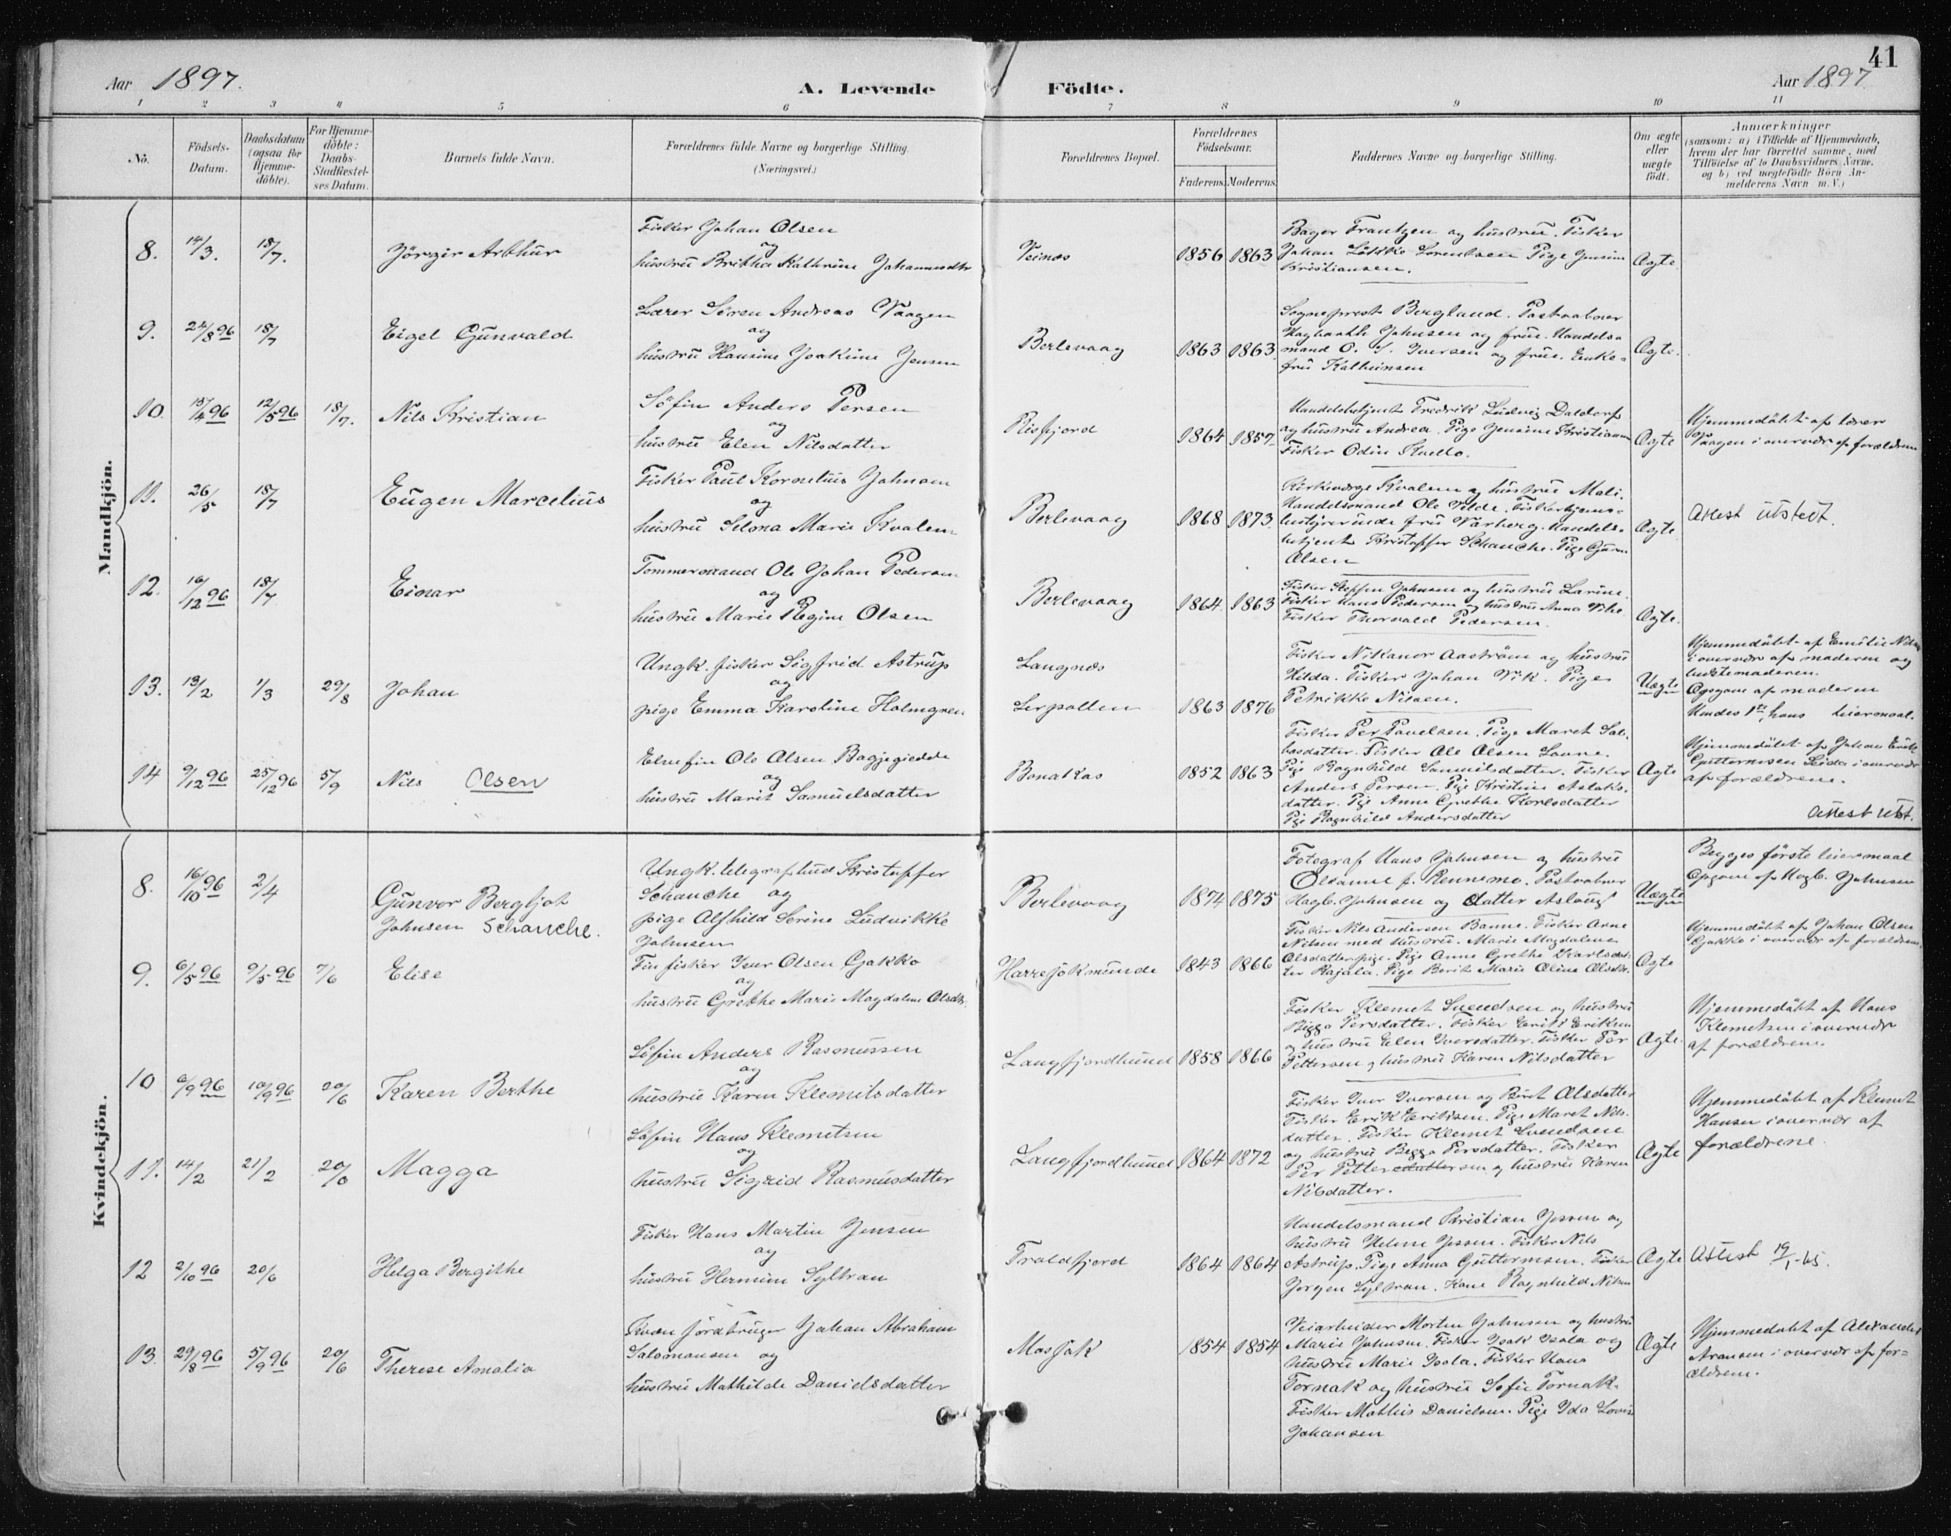 41
Aar 1897.
A. Levende
Födte.
Aar 1897
1 2 3 4 5 6 7 8 9 10 11
No.
Födsels-Datum.
Daabsdatum (ogsaa for Hjemme-döbte).
For Hjemme-döbte: Daabs-Stadfæstel-ses Datum.
Barnets fulde Navn.
Forældrenes fulde Navne og borgerlige Stilling.
(Næringsvei.)
Forældrenes Bopæl.
Forældrenes Födselsaar.
Faderens. Moderens.
Faddernes Navne og borgerlige Stilling.
Om ægte eller uægte födt.
Anmærkninger
(saasom: a) i Tilfælde af Hjemmedaab,
hvem der har forrettet samme, med
Tilföielse af to Daabsvidners Navne,
og b) ved uægtefödte Börn An-
melderens Navn m. V.)
Mandkjön.
8. 14/3. 18/7. Jörgir Arthur
Fisker Johan Olsen
og
hustru Britha Kathrine Johannesdtr
Veines 1856 1863
Bager Frantzen og hustru. Fisker
Johan Lorentsen Pige Jensine
Kristiansen.
Ægte
9. 24/8 96 18/7 Eigel Gunvald
Lærer Sören Andreas Vaagen
og
hustru Hansine Joakime Jensen
Berlevaag 1863 1863
Sogneprest Berglund. Postaabner
Hagbarth Johnsen og frue. Handels-
mand O. J. Iversen og frue. Enke-
fru Kathrinsen
Ægte.
10. 15/4 96 12/5 96 18/7. Nils Kristian
Söfin Anders Persen
og
hustru Elen Nilsdatter
Risfjord 1864 1857
Handelsbetjent Fredrik Ludvig Daldorf
og hustru Andrea. Pige Jensine Kristiansen
Fisker Odin Kvello.
Ægte
Hjemmedöbt af lærer
Vaagen i overvær af forældrene
11. 26/5 18/7 Eugen Marcelius
Fisker Paul Kornelius Johnsen
og
hustru Selona Marie Kvalen
Berlevaag 1868 1873.
Kirkeværge Kvalen og hustru Mali.
Handelsmand Ole Vilde. Fiskerhjems-
bestyrerinde fru Varberg. Handels-
betjent Kristoffer Schanche. Pige
Olsen
Ægte.
Attest utstedt.
12. 16/12 96 18/7 Einar
Tommermand Ole Johan Pedersen
og
hustru Marie Regine Olsen
Berlevaag 1864. 1863
Fisker Steffen Johnsen og hustru Larine.
Fisker Hans Pedersen og hustru Anna
Fisker Thorvald Pedersen.
Ægte.
13. 13/2 1/3 29/8 Johan
Ungk. fisker Sigfrid Astrup
og
pige Emma Karoline Holmgren
Langnes
Lerpollen 1863 1876
Fisker Nikanor Aaström og hustru
Hilda. Fisker Johan Vik. Pige
Petrikke Nilsen.
Uægte
Hjemmedöbt af Emilie Nilsen
i overvær af moderen og
bedstemoderen.
Opgave af moderen
Hendes 1ste, hans leiermaal.
14 9/12 96 25/12 96 5/9 Nils Olsen
Elvefin Ole Olsen Bagjegiedde
og
hustru Marit Samuelsdatter
Bonakas 1852 1863
Fisker Per Povelsen. Pige Maret Sal-
Fisker Ole Olsen
Pige Ragnhild Samuelsdatter. Fisker
Anders Persen. Pige Kristine Aslaks-
datter. Pige Anne Grethe Karlsdatter
Pige Ragnhild Andersdatter
Ægte
Hjemmedöbt af Johan Erik
Guttormsen i overvær
af forældrene.
Attest utst.
Kvindekjön.
8. 16/10 96 2/4
Gunvor Bergljot
Johnsen Schanche.
Ungk. telegrafbud Kristoffer
Schanche og
pige Alfhild Serine Ludvikke
Johnsen
Berlevaag 1874 1875
Fotograf Hans Johnsen og hustru
f. Rennemo. Postaabner
Hagb. Johnsen og datter Aslaug
Uægte
Begges förste leiermaal
Opgave af Hagb. Johnsen
9. 6/5 96 9/5 96 7/6 Elise
Fin fisker Iver Olsen Gjakko
og
hustru Grethe Marie Magdalene Olsdtr.
Harrejokmunde 1843 1866
Fisker Nils Andersen Banne. Fisker Arne
Nilsen med hustru. Marie Magdalene
Olsdatter pige. Pige Anne Grethe Karlsdat-
ter Rajala. Pige Berit Marie Oline Olsdtr.
Ægte
Hjemmedöbt af Johan Olsen
Gjakko i overvær af forældrene.
10 6/9 96 10/9 96 20/6 Karen Berthe
Söfin Anders Rasmussen
og
hustru Karen Klemetsdatter
Langfjordbund 1858 1866
Fisker Klemet Svendsen og hustru
Bigga Persdatter. Fisker Erik Eriksen
og hustru Elen Iversdatter. Fisker Per
Pettersen og hustru Karen Nilsdatter
Ægte.
Hjemmedöbt af Hans
Klemetsen i overvær
af forældrene.
11. 14/2 21/2 20/6 Magga
Söfin Hans Klemetsen
og
hustru Sigrid Rasmusdatter
Langfjordbund 1864 1872
Fisker Iver Iversen og Berit Olsdatter
Fisker Erik Eriksen. Pige Maret Nils-
datter. Fisker Klemet Svendsen
og hustru Begga Persdatter. Fisker
Per Pettersen og hustru Karen
Nilsdatter.
Ægte
Hjemmedöbt af Klemet
Hansen i overvær af
forældrene.
12 2/10 96 20/6 Helga Bergithe
Fisker Hans Martin Jensen
og
hustru Hermine Syltran
Troldfjord 1864 1864
Handelsmand Kristian Jessen og
hustru Helene Jessen. Fisker Nils
Astrup. Pige Anna Guttormsen. Fisker
Jorgen Syltran. Kone Ragnhild Nilsen
Ægte
Attest 19/1-65.
13. 29/8 96 5/9 96 20/6 Therese Amalia
Kvæn jordbruger Johan Abraham
Salomonsen og
hustru Mathilde Danielsdatter
Masjok 1854 1854
Veiarbeider Morten Johnsen og hustru
Marie Johnsen. Fisker Isak Isala og
hustru Marie Isala. Fisker Hans
Tornak og hustru Sofie Tornak.
Fisker Mathis Danielsen. Pige Ida Lovise
Johansen
Ægte
Hjemmedöbt af Alexander
Aronsen i overvær af for-
ældrene.